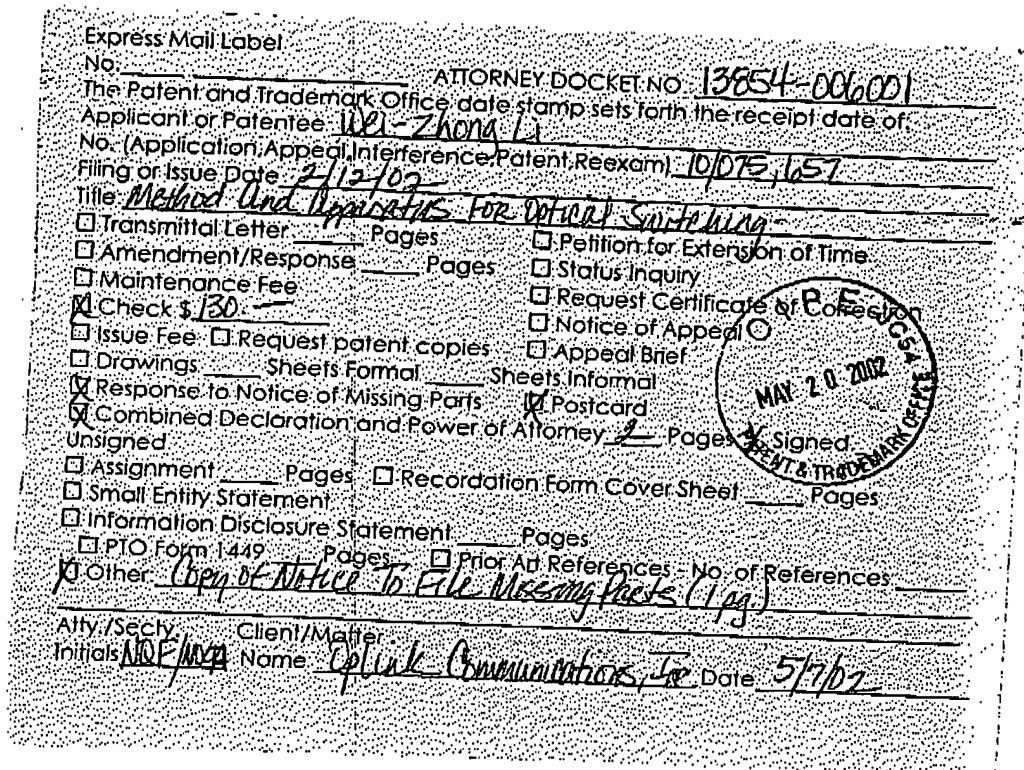 Express Mail Label
No. ATTORNEY DOCKET NO. 13854-006001
The Patent and Trademark Office date stamp sets forth the receipt date of:
Applicant or Patentee Wei-Zhong Li
No. (Application, Appeal, Interference, Patent, Reexam) 10/075,657
Filing or Issue Date 2/12/02
Title Method And Apparatus For Optical Switching
Transmittal Letter ____ Pages
Petition for Extension of Time
Amendment/Response ____ Pages
Status Inquiry
Maintenance Fee
Request Certificate of Correction
Check $ 130.—
Notice of Appeal
Issue Fee Request patent copies
Appeal Brief
Drawings ____ Sheets Formal ____ Sheets Informal
Response to Notice of Missing Parts Postcard
Combined Declaration and Power of Attorney 2 Pages Signed
Unsigned
Assignment ____ Pages Recordation Form Cover Sheet ____ Pages
Small Entity Statement
Information Disclosure Statement ____ Pages
PTO Form 1449 ____ Pages Prior Art References - No. of References ____
Other: Copy of Notice To File Missing Parts (1 pg.)
Atty./Secty. Client/Matter
Initials Name Oplink Communications, Inc Date 5/7/02
MAY 20 2002
PATENT & TRADEMARK OFFICE